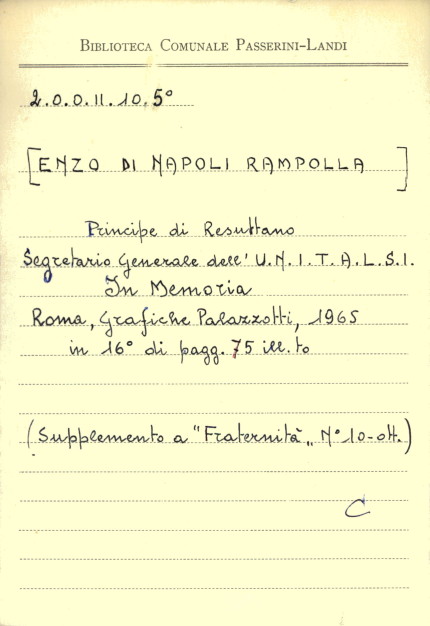 BIBLIOTECA COMUNALE PASSERINI-LANDI
2.0.0.II.10.5°
[ENZO DI NAPOLI RAMPOLLA]
Principe di Resuttano
Segretario Generale dell'U.N.I.T.A.L.S.I.
In Memoria
Roma, Grafiche Palazzotti, 1965
in 16° di pagg. 75 ill.to
(Supplemento a "Fraternità„ N° 10-ott.)
C